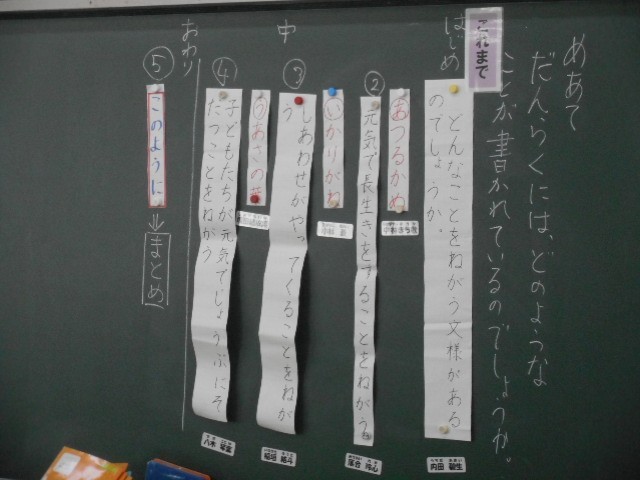 めあて
だんらくには、どのような
ことが書かれているのでしょうか。
これまで
はじめ
どんなことをねがう文様がある
のでしょうか。
内田
中
②
あつるかめ
元気で長生きをすることをねがう
落合
③
いかりがね
小林
しあわせがやってくることをねが
う
稲垣
④
うあさのは
子どもたちが元気でじょうぶにそ
だつことをねがう
八木
おわり
⑤
このように
⇒
まとめ